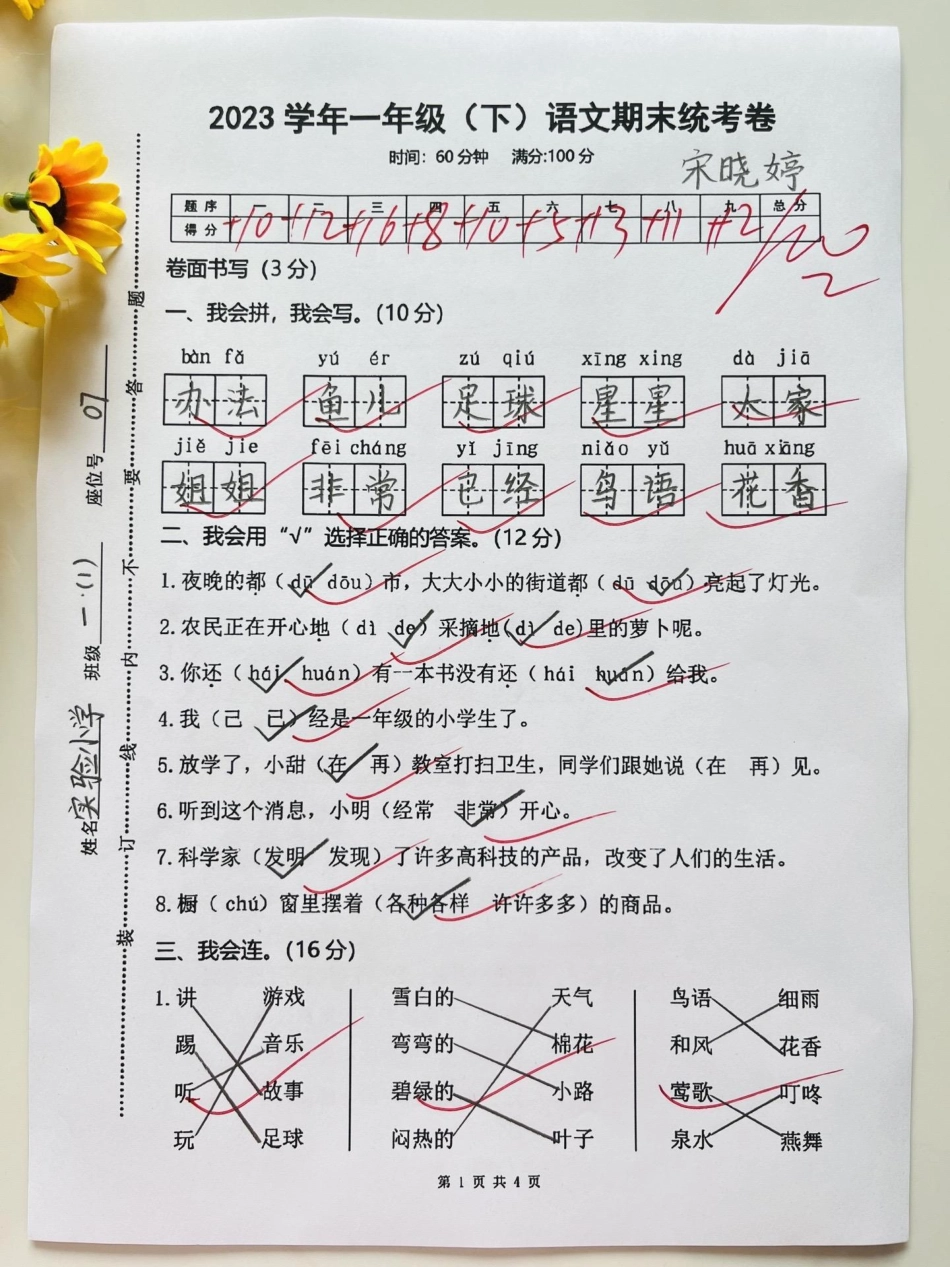 2023 学年一年级（下）语文期末统考卷
时间：60 分钟 满分:100 分
宋晓婷
题 序 一 二 三 四 五 六 七 八 九 总 分
得 分 +10 +12 +16 +8 +10 +5 +13 +11 +12 100
2
卷面书写（3 分）
一、我会拼，我会写。（10 分）
bàn fǎ yú ér zú qiú xīng xing dà jiā
办法 鱼儿 足球 星星 大家
jiě jie fēi cháng yǐ jīng niǎo yǔ huā xiāng
姐姐 非常 已经 鸟语 花香
二、我会用“√”选择正确的答案。（12 分）
1.夜晚的都（ dū√ dōu）市，大大小小的街道都（ dū dōu√）亮起了灯光。
2.农民正在开心地（ dì de√）采摘地(dì√ de)里的萝卜呢。
3.你还（ hái√ huán）有一本书没有还（ hái huán√）给我。
4.我（己 已√）经是一年级的小学生了。
5.放学了，小甜（在√ 再）教室打扫卫生，同学们跟她说（在 再）见。
6.听到这个消息，小明（经常 非常√）开心。
7.科学家（发明√ 发现）了许多高科技的产品，改变了人们的生活。
8.橱（ chú）窗里摆着（各种各样√ 许许多多）的商品。
三、我会连。（16 分）
1.讲 游戏 雪白的 天气 鸟语 细雨
踢 音乐 弯弯的 棉花 和风 花香
听 故事 碧绿的 小路 莺歌 叮咚
玩 足球 闷热的 叶子 泉水 燕舞
第 1 页 共 4 页
姓名 实验小学 班级 一.(1) 座位号 07
装 订 线 内 不 要 答 题